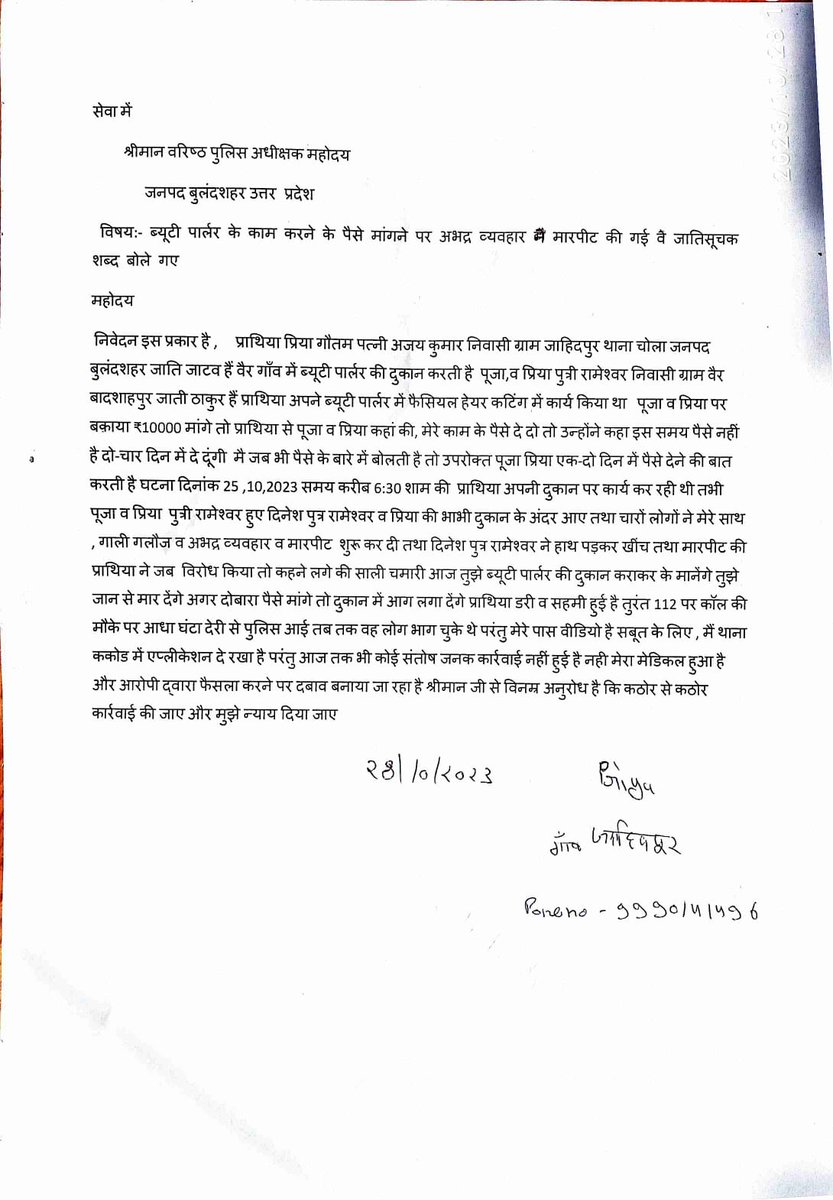 सेवा में
श्रीमान वरिष्ठ पुलिस अधीक्षक महोदय
जनपद बुलंदशहर उत्तर प्रदेश
विषय:- ब्यूटी पार्लर के काम करने के पैसे मांगने पर अभद्र व्यवहार मै मारपीट की गई वै जातिसूचक
शब्द बोले गए
महोदय
निवेदन इस प्रकार है , प्राथिया प्रिया गौतम पत्नी अजय कुमार निवासी ग्राम जाहिदपुर थाना चोला जनपद
बुलंदशहर जाति जाटव हैं वैर गाँव में ब्यूटी पार्लर की दुकान करती है पूजा,व प्रिया पुत्री रामेश्वर निवासी ग्राम वैर
बादशाहपुर जाती ठाकुर हैं प्राथिया अपने ब्यूटी पार्लर में फैसियल हेयर कटिंग में कार्य किया था पूजा व प्रिया पर
बक़ाया ₹10000 मांगे तो प्राथिया से पूजा व प्रिया कहां की, मेरे काम के पैसे दे दो तो उन्होंने कहा इस समय पैसे नहीं
है दो-चार दिन में दे दूंगी मै जब भी पैसे के बारे में बोलती है तो उपरोक्त पूजा प्रिया एक-दो दिन में पैसे देने की बात
करती है घटना दिनांक 25 ,10,2023 समय करीब 6:30 शाम की प्राथिया अपनी दुकान पर कार्य कर रही थी तभी
पूजा व प्रिया पुत्री रामेश्वर हुए दिनेश पुत्र रामेश्वर व प्रिया की भाभी दुकान के अंदर आए तथा चारों लोगों ने मेरे साथ
, गाली गलौज व अभद्र व्यवहार व मारपीट शुरू कर दी तथा दिनेश पुत्र रामेश्वर ने हाथ पड़कर खींच तथा मारपीट की
प्राथिया ने जब विरोध किया तो कहने लगे की साली चमारी आज तुझे ब्यूटी पार्लर की दुकान कराकर के मानेंगे तुझे
जान से मार देंगे अगर दोबारा पैसे मांगे तो दुकान में आग लगा देंगे प्राथिया डरी व सहमी हुई है तुरंत 112 पर कॉल की
मौके पर आधा घंटा देरी से पुलिस आई तब तक वह लोग भाग चुके थे परंतु मेरे पास वीडियो है सबूत के लिए , मैं थाना
ककोड में एप्लीकेशन दे रखा है परंतु आज तक भी कोई संतोष जनक कार्रवाई नहीं हुई है नही मेरा मेडिकल हुआ है
और आरोपी द्वारा फैसला करने पर दबाव बनाया जा रहा है श्रीमान जी से विनम्र अनुरोध है कि कठोर से कठोर
कार्रवाई की जाए और मुझे न्याय दिया जाए
२8/10/२०२३
Priya
गाँव जाहिदपुर
Poneno -